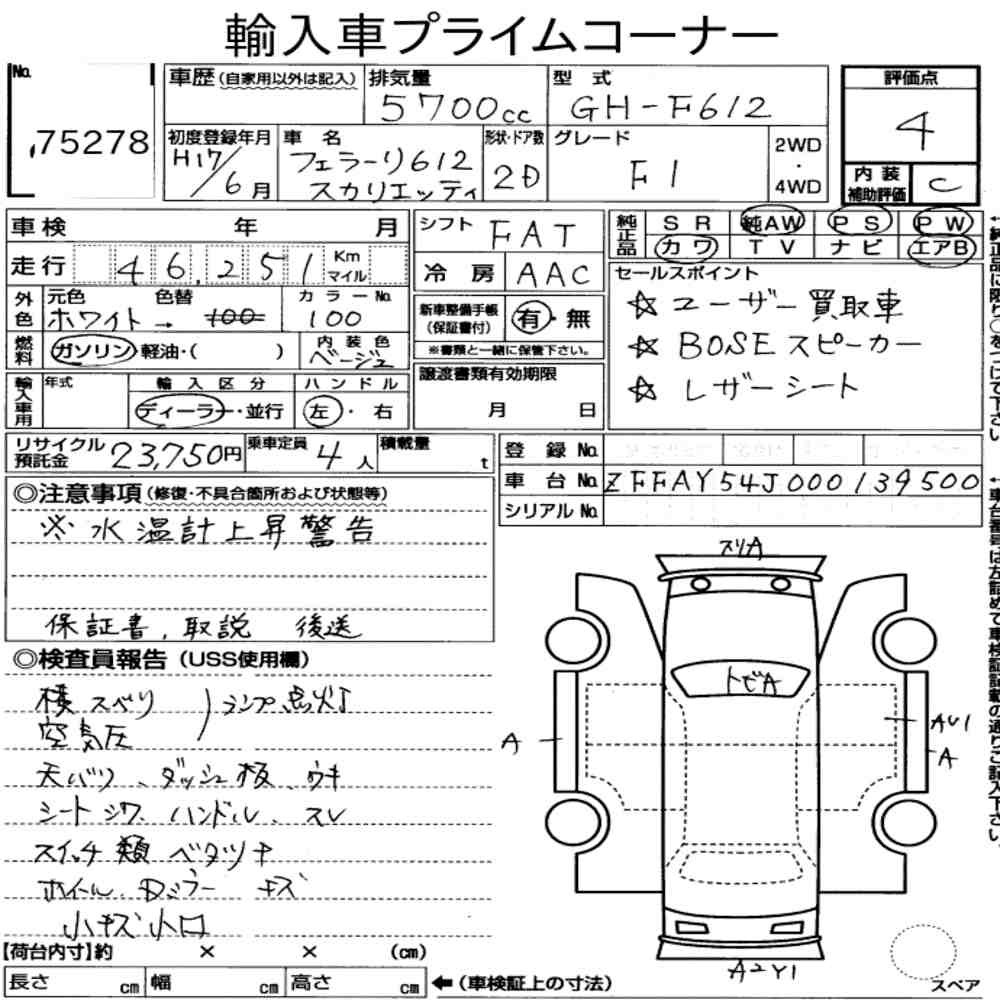 輸入車プライムコーナー
No. 75278
車歴(自家用以外は記入)
排気量 5700cc
型式 GH-F612
評価点 4
初度登録年月 H17/6月
車名 フェラーリ612 スカリエッティ
形状・ドア数 2D
グレード F1
2WD・4WD
内装補助評価 C
車検 年 月
シフト FAT
純正品 SR 純AW PS PW
カワ TV ナビ エアB
走行 46,251 Km マイル
冷房 AAC
セールスポイント
☆ユーザー買取車
☆BOSEスピーカー
☆レザーシート
外色 元色 色替 カラーNo.
ホワイト → 100 100
新車整備手帳(保証書付) 有・無
※書類と一緒に保管下さい。
燃料 ガソリン・軽油・( ) 内装色 ベージュ
譲渡書類有効期限
月 日
輸入車用 年式 輸入区分 ハンドル
ディーラー・並行 左・右
リサイクル預託金 23,750円 乗車定員 4人 積載量 t
登録No.
車台No. ZFFAY54J000139500
シリアルNo.
◎注意事項(修復・不具合箇所および状態等)
※水温計上昇警告
保証書,取説 後送
◎検査員報告(USS使用欄)
横スベリ
空気圧 ランプ点灯
天バリ、ダッシュ板 ウキ
シートシワ、ハンドル、スレ
スイッチ類ベタツキ
ホイール、Rバンパー キズ
小キズ小凹
スリA
トビA
A
AU1
A
A2Y1
スペア
【荷台内寸】約 × × (cm)
長さ cm 幅 cm 高さ cm ←(車検証上の寸法)
←純正品に限り○をつけて下さい。
←車台番号は左詰めで車検証記載の通りご記入下さい。